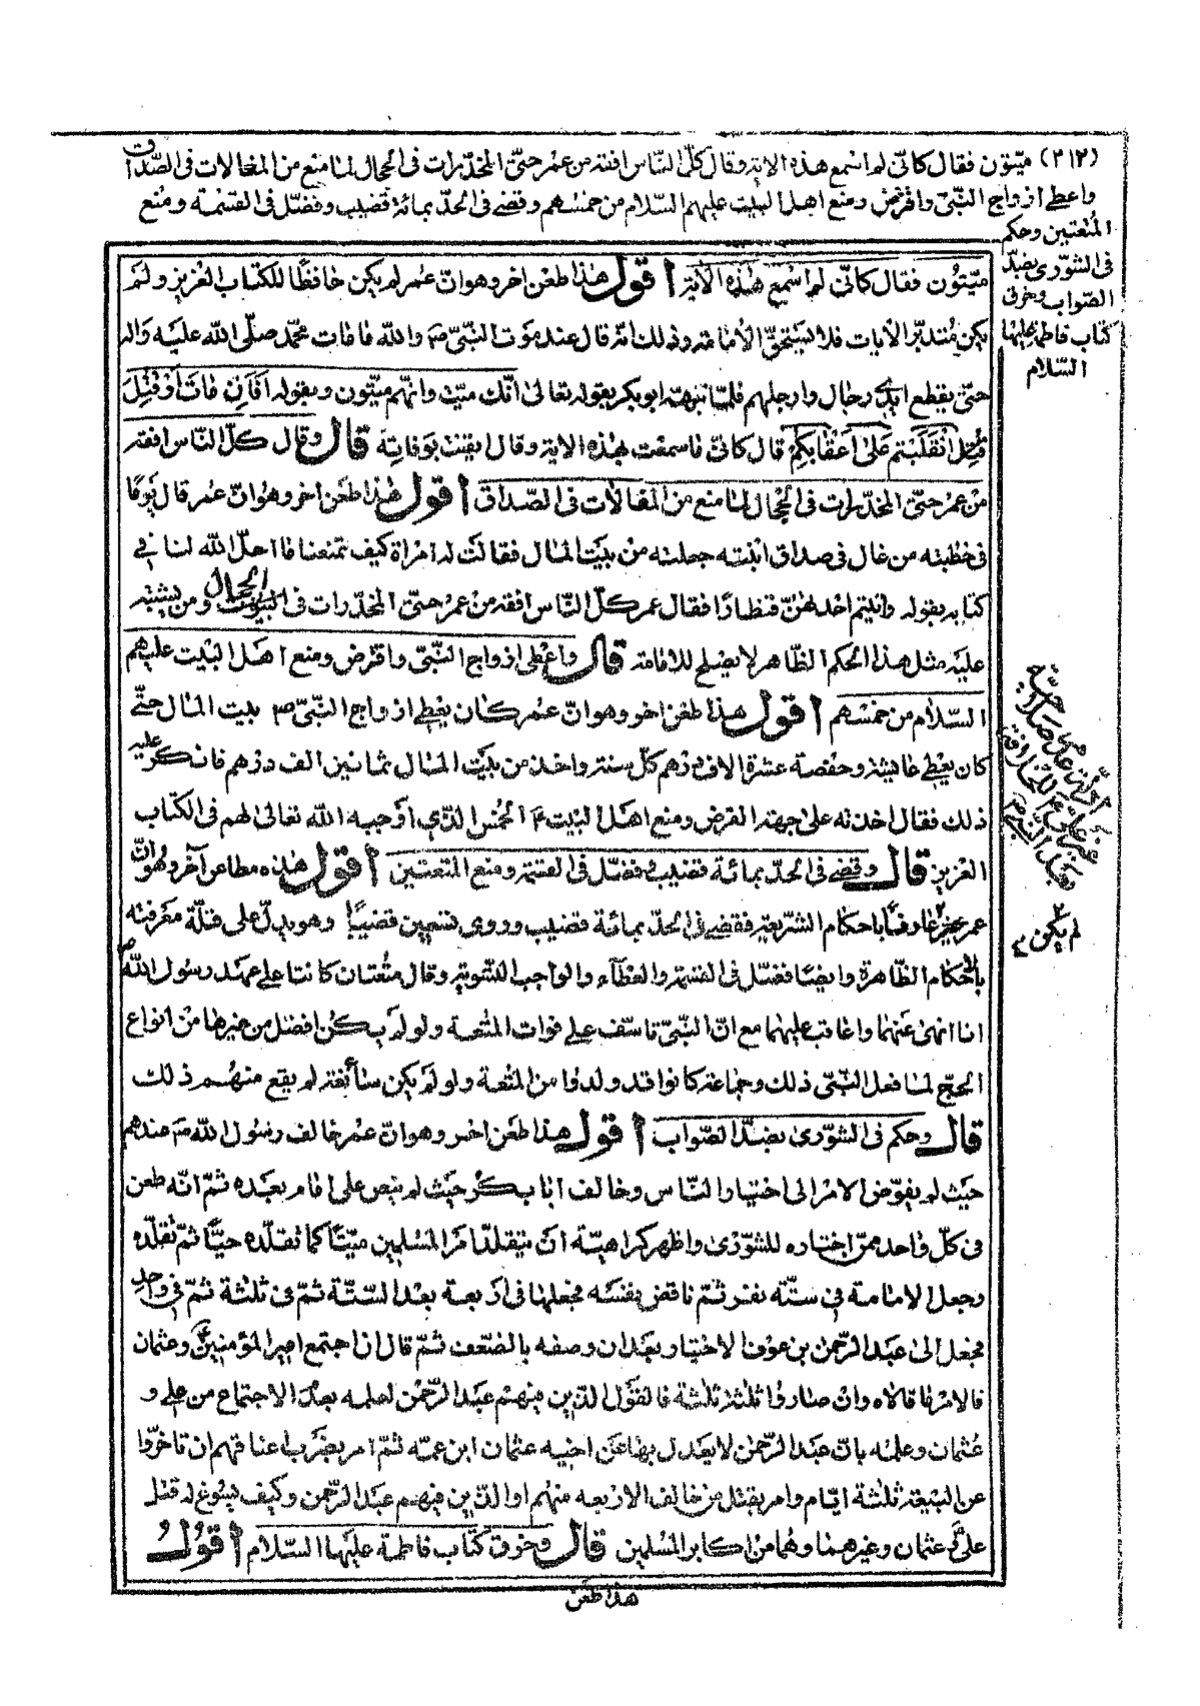 (٣١٢) ميّتون فقال كانّى لم اسمع هذه الاية وقال كلّ النّاس افقه من عمر حتىّ المخدّرات فى الحجال لما منع من المغالات فى الصّداق
واعطى ازواج النّبىّ واقرض ومنع اهل البيت عليهم السّلام من خمسهم وقضى فى الحدّ بمائة قضيب وفضّل فى القسمة ومنع
المتعتين وحكم
فى الشورى بضدّ
الصّواب وخرق
كتاب فاطمة عليها
السّلام
ميّتون فقال كانّى لم اسمع هذه الاية اقول هذا طعن اخر وهو انّ عمر لم يكن حافظًا للكتاب العزيز ولم
يكن متدبّر الآيات فلا يستحقّ الأمامة وذلك انّه قال عند موت النّبىّ ص والله ما مات محمّد صلّى الله عليه واله
حتىّ يقطع ايدى رجال وارجلهم فلمّا نبّهه ابو بكر بقوله تعالى انّك ميّت وانّهم ميّتون وبقوله افان مات او قتل
انقلبتم على اعقابكم قال كانّى ما سمعت بهذه الاية وقال ايقنت بوفاته قال وقال كلّ النّاس افقه
من عمر حتىّ المخدّرات فى الحجال لما منع من المغالات فى الصّداق اقول هذا طعن اخر وهو انّ عمر قال يومًا
فى خطبته من غال فى صداق ابنته جعلته من بيت المال فقالت له امراة كيف تمنعنا ما احلّ الله لنا فى
كتابه بقوله واتيتم احديهنّ قنطارًا فقال عمر كلّ النّاس افقه من عمر حتىّ المخدّرات فى البيوت الحجال ومن يشتبه
عليه مثل هذا الحكم الظّاهر لا يصلح للامامة قال واعطى ازواج النّبىّ واقرض ومنع اهل البيت عليهم
السّلام من خمسهم اقول هذا طعن اخر وهو انّ عمر كان يعطى ازواج النّبىّ ص بيت المال حتىّ
كان يعطى عايشة وحفصة عشرة الاف درهم كلّ سنة واخذ من بيت المال ثمانين الف درهم فانكر عليه
ذلك فقال اخذته على جهة القرض ومنع اهل البيت ع الخمس الذى اوجبه الله تعالى لهم فى الكتاب
العزيز قال وقضى فى الحدّ بمائة قضيب وفضّل فى القسمة ومنع المتعتين اقول هذه مطاعن آخر وهو انّ
عمر غير عارف باحكام الشريعة فقضى فى الحدّ بمائة قضيب وروى تسعين قضيبًا وهو يدلّ على قلّة معرفته
بالاحكام الظّاهرة وايضًا فضّل فى القسمة والعطاء والواجب التسوية وقال متعتان كانتا على عهد رسول الله ص
انا انهى عنهما واعاقب عليهما مع انّ النّبىّ تاسّف على فوات المتعة ولو لم يكن افضل من غيرها من انواع
الحجّ لما فعل النّبى ذلك وجماعة كانوا قد ولدوا من المتعة ولو لم يكن سائغة لم يقع منهم ذلك
قال وحكم فى الشورى بضدّ الصّواب اقول هذا طعن اخر وهو انّ عمر خالف رسول الله ص عندهم
حيث لم يفوّض الامر الى اختيار النّاس وخالف ابا بكر حيث لم ينص على امام بعده ثمّ انّه طعن
فى كلّ واحد ممّن اختاره للشورى واظهر كراهيّة ان يتقلّد امر المسلمين ميّتًا كما تقلّده حيًّا ثمّ تقلّده
وجعل الامامة فى ستّة نفر ثمّ ناقض بنفسه فجعلها فى اربعة بعد السّتّة ثمّ فى ثلثة ثمّ فى واحد
فجعل الى عبد الرّحمن بن عوف الاختيار بعد ان وصفه بالضّعف ثمّ قال ان اجتمع امير المؤمنين ع وعثمان
فالامر ما قالاه وان صاروا ثلثة ثلثة فالقول للّذين فيهم عبد الرّحمن لعلمه بعدم الاجتماع من على و
عثمان وعلمه بانّ عبد الرّحمن لا يعدل بها عن اخيه عثمان ابن عمّه ثمّ امر بضرب اعناقهم ان تاخّروا
عن البيعة ثلثة ايّام وامر بقتل من خالف الاربعه منهم او الّذين فيهم عبد الرّحمن وكيف يسوغ له قتل
على ع وعثمان وغيرهما وهما من اكابر المسلمين قال وخرق كتاب فاطمة عليها السّلام اقول
هذا طعن
لم يكن